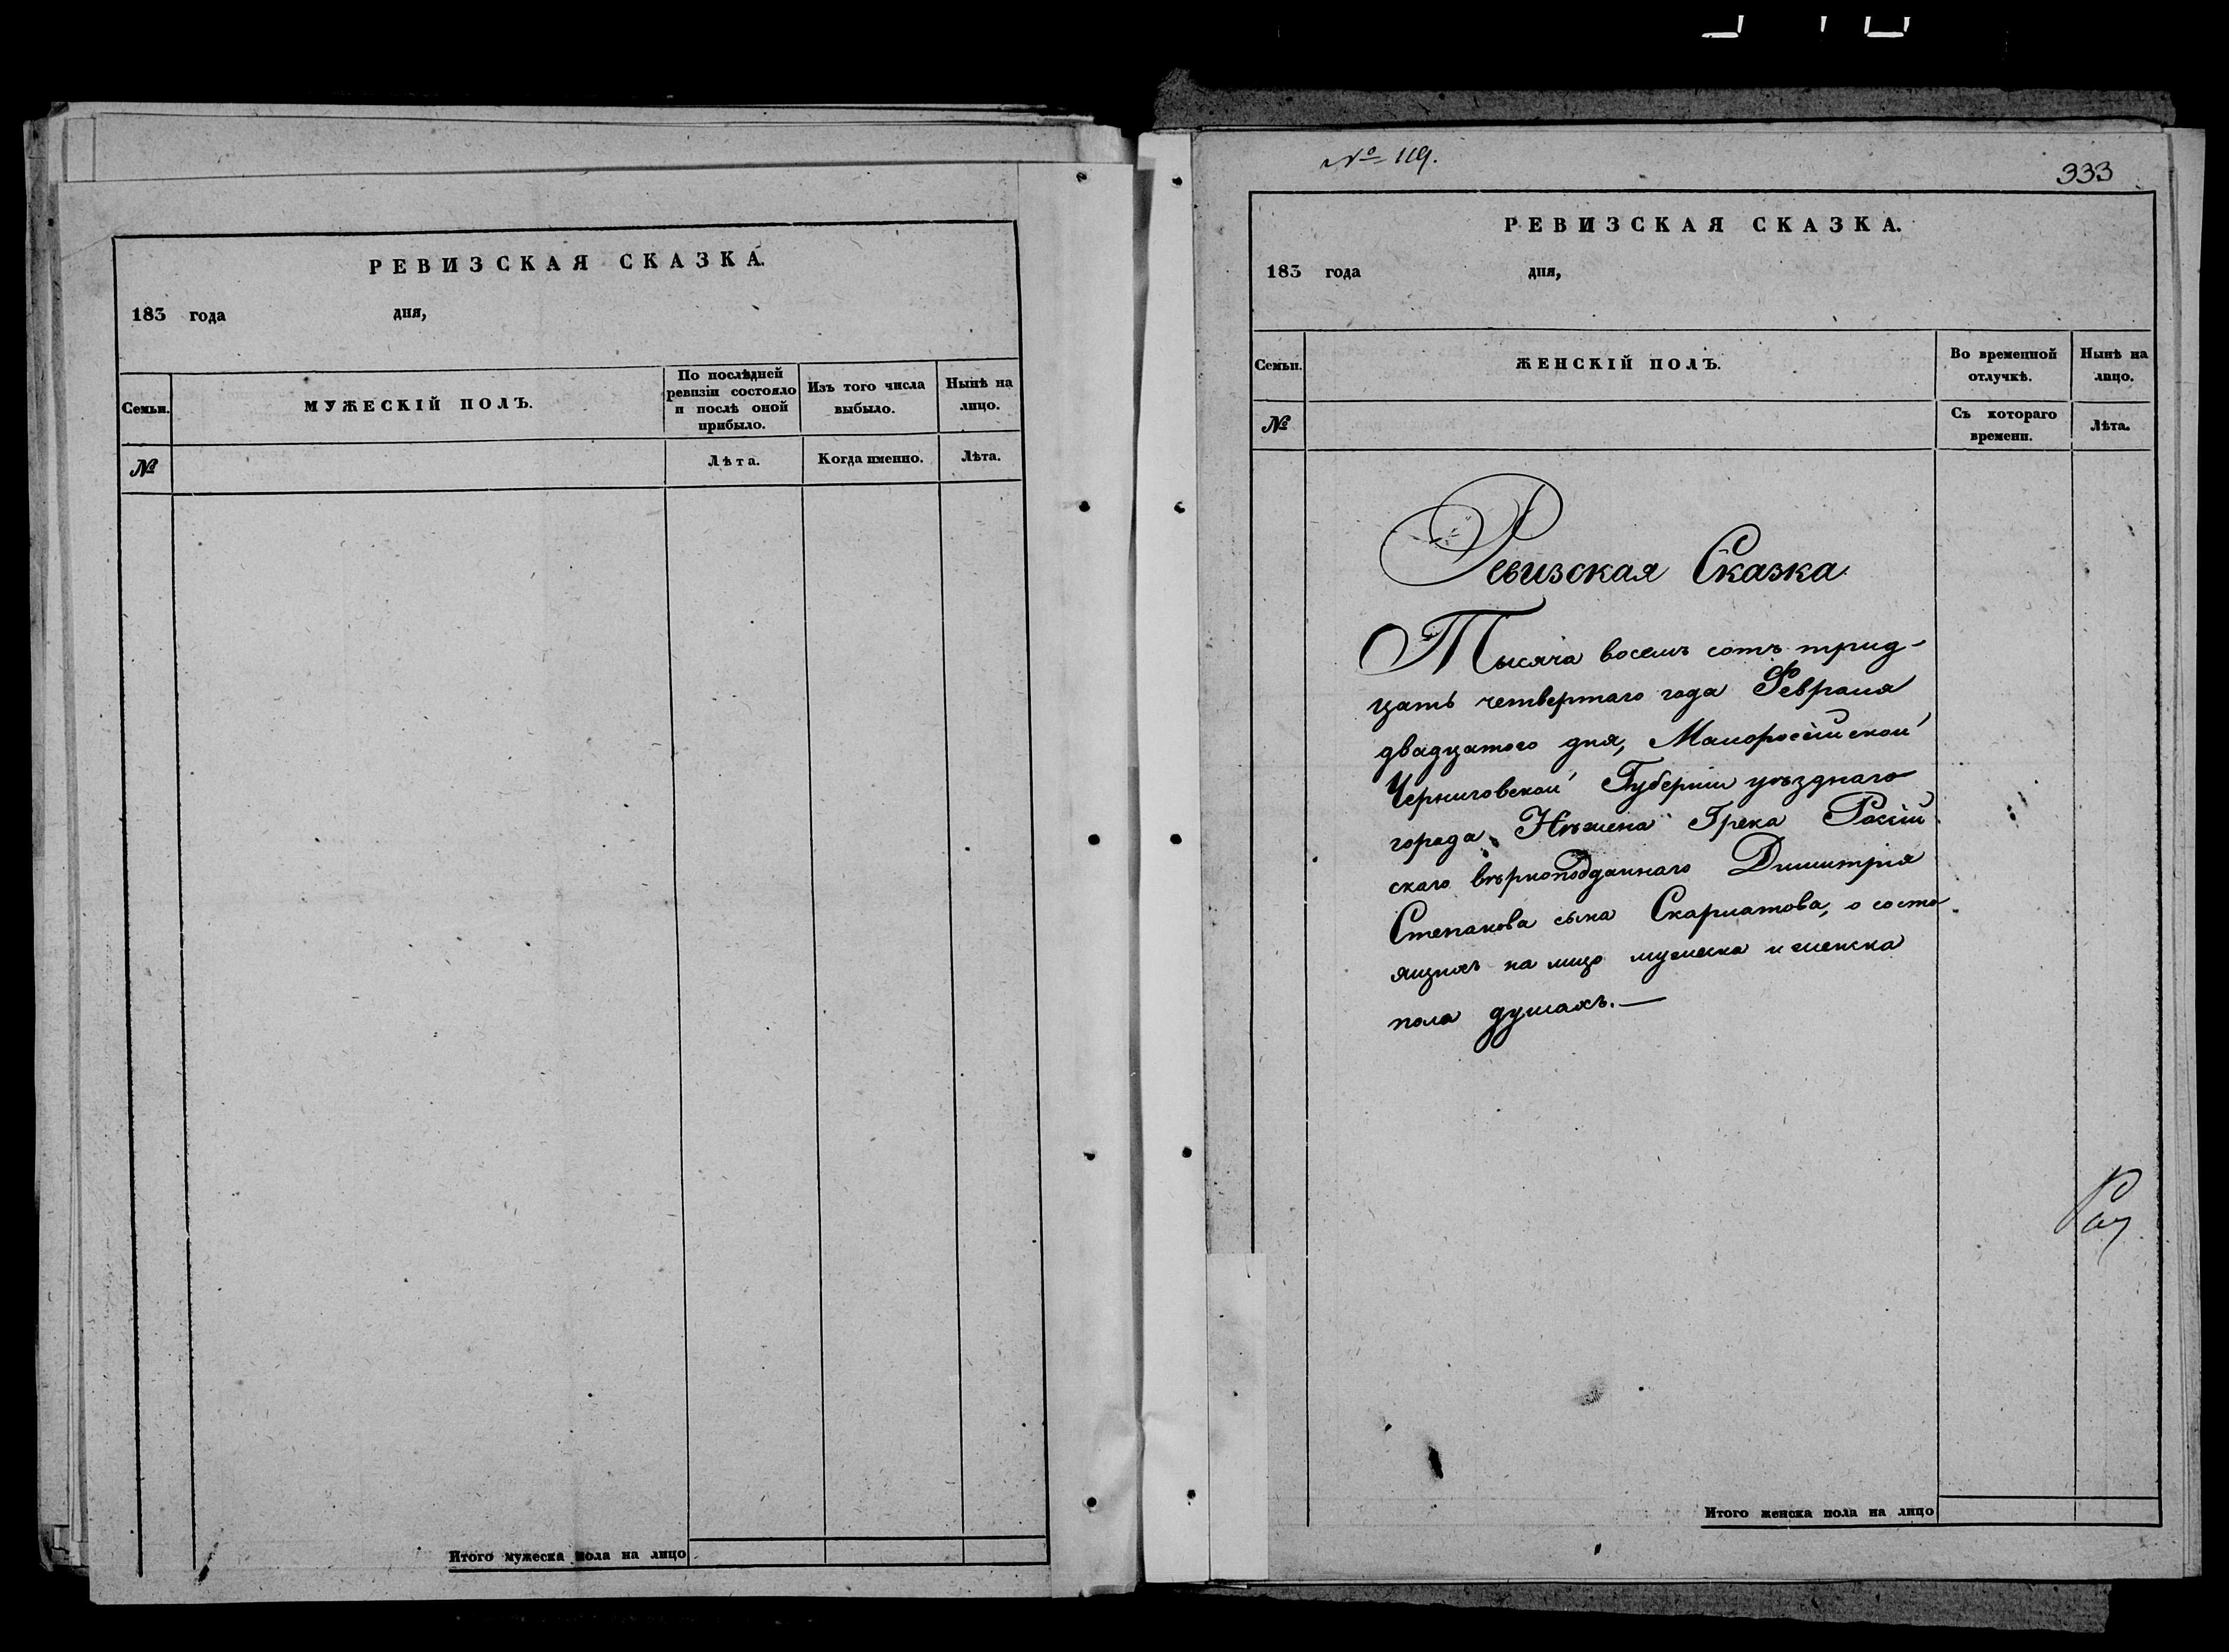 РЕВИЗСКАЯ СКАЗКА.
183 года дня,
Семьи. МУЖЕСКІЙ ПОЛЪ. По послѣдней ревизіи состояло и послѣ оной прибыло. Изъ того числа выбыло. Нынѣ на лицо.
№ Лѣта. Когда именно. Лѣта.
Итого мужеска пола на лицо
№ 119.
333
РЕВИЗСКАЯ СКАЗКА.
183 года дня,
Семьи. ЖЕНСКІЙ ПОЛЪ. Во временной отлучкѣ. Нынѣ на лицо.
№ Съ котораго времени. Лѣта.
Ревизская Сказка
Тысяча восемъ сотъ трид-
цать четвертаго года Февраля
двадцатого дня, Малоросейской
Черниговской Губерніи уѣзднаго
города Нѣжена Грека Росій
скаго вѣрноподданнаго Димитрія
Степанова сына Скарлатова, о состо
ящихъ на лицо мужеска и женска
пола душахъ.—
Итого женска пола на лицо